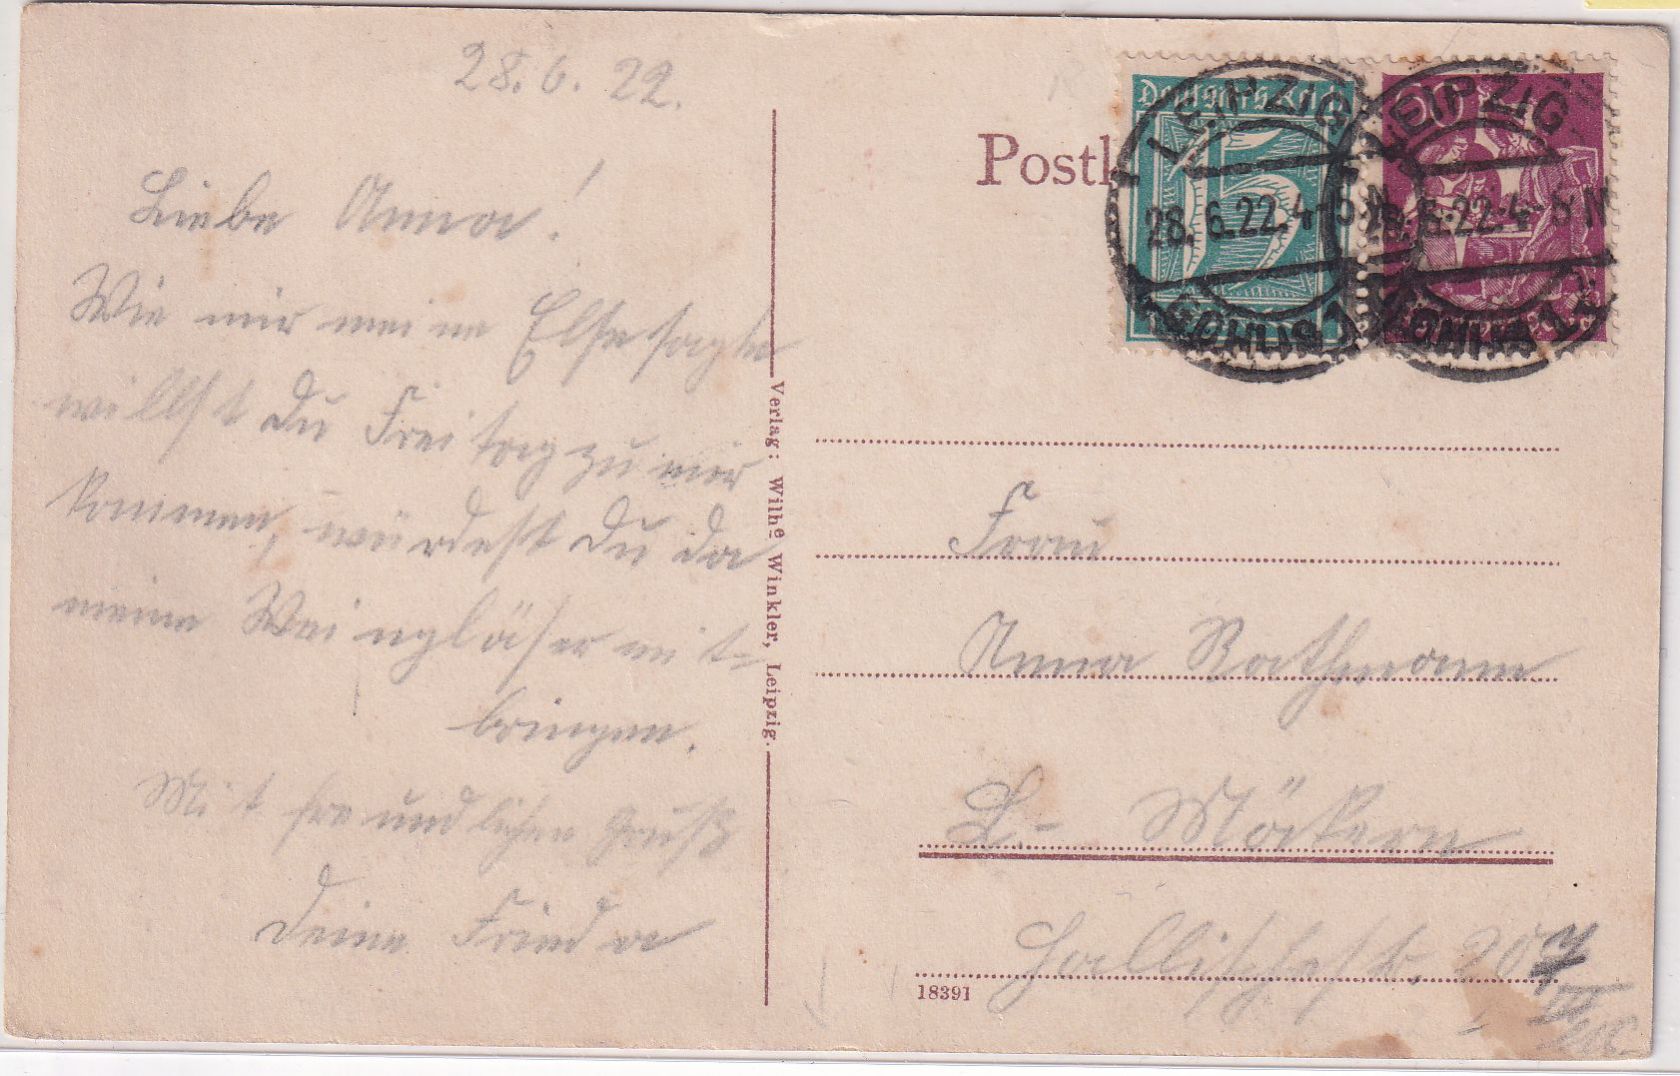 28. 6. 22.
Liebe Anna!
Wie mir meine Else sagte
willst Du Freitag zu mir
kommen, würdest Du da
meine Weingläser mit-
bringen.
Mit freundlichen Gruß
Deine Frieda
Verlag: Wilhe Winkler, Leipzig.
Postk
Deutsches Reich
15
60
LEIPZIG
28.6.22.4-5 N
GOHLIS 1
LEIPZIG
28.6.22.4-5 N
GOHLIS 1
Frau
Anna Rathmann
L.- Möckern
Hallischestr. 207
18391